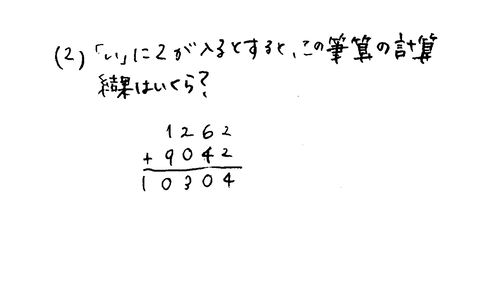 (2)「い」に2が入るとすると、この筆算の計算
結果はいくら?
1262
+ 9042
10304